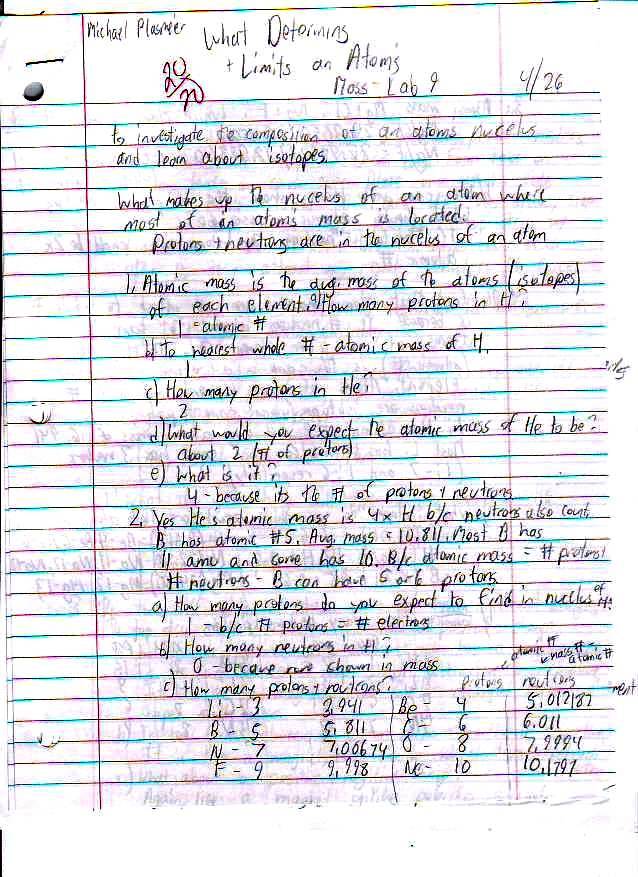 Michael Plasmeier
What Determins
+ Limits an Atom's
Mass - Lab 9
4/26
20/20
to investigate the composition of an atoms nucelus
and learn about isotopes.
What makes up the nucelus of an atom where
most of an atoms mass is located.
Protons + neutrons are in the nucelus of an atom
1. Atomic mass is the avg. mass of the atoms (isotopes)
of each element. a) How many protons in H?
1 = atomic #
b) To nearest whole # - atomic mass of H.
1
c) How many protons in He?
2
d) What would you expect the atomic mass of He to be?
about 2 (# of protons)
e) What is it?
4 - because its the # of protons + neutrons
2. Yes He's atomic mass is 4x H b/c neutrons also count
B has atomic #5. Avg. mass = 10.811. Most B has
11 amu and some has 10. B/c atomic mass = # protons +
# neutrons - B can have 5 or 6 protons
a) How many protons do you expect to find in nuclus of H?
1 - b/c # protons = # electrons
b) How many neutrons in H?
0 - because none shown in mass
c) How many protons + neutrons?
atomic #
mass # - atomic #
protons neutrons
Li - 3 3,941 Be - 4 5,012182
B - 5 5,811 C - 6 6.011
N - 7 7,00674 O - 8 7,9994
F - 9 9,998 Ne - 10 10,1797